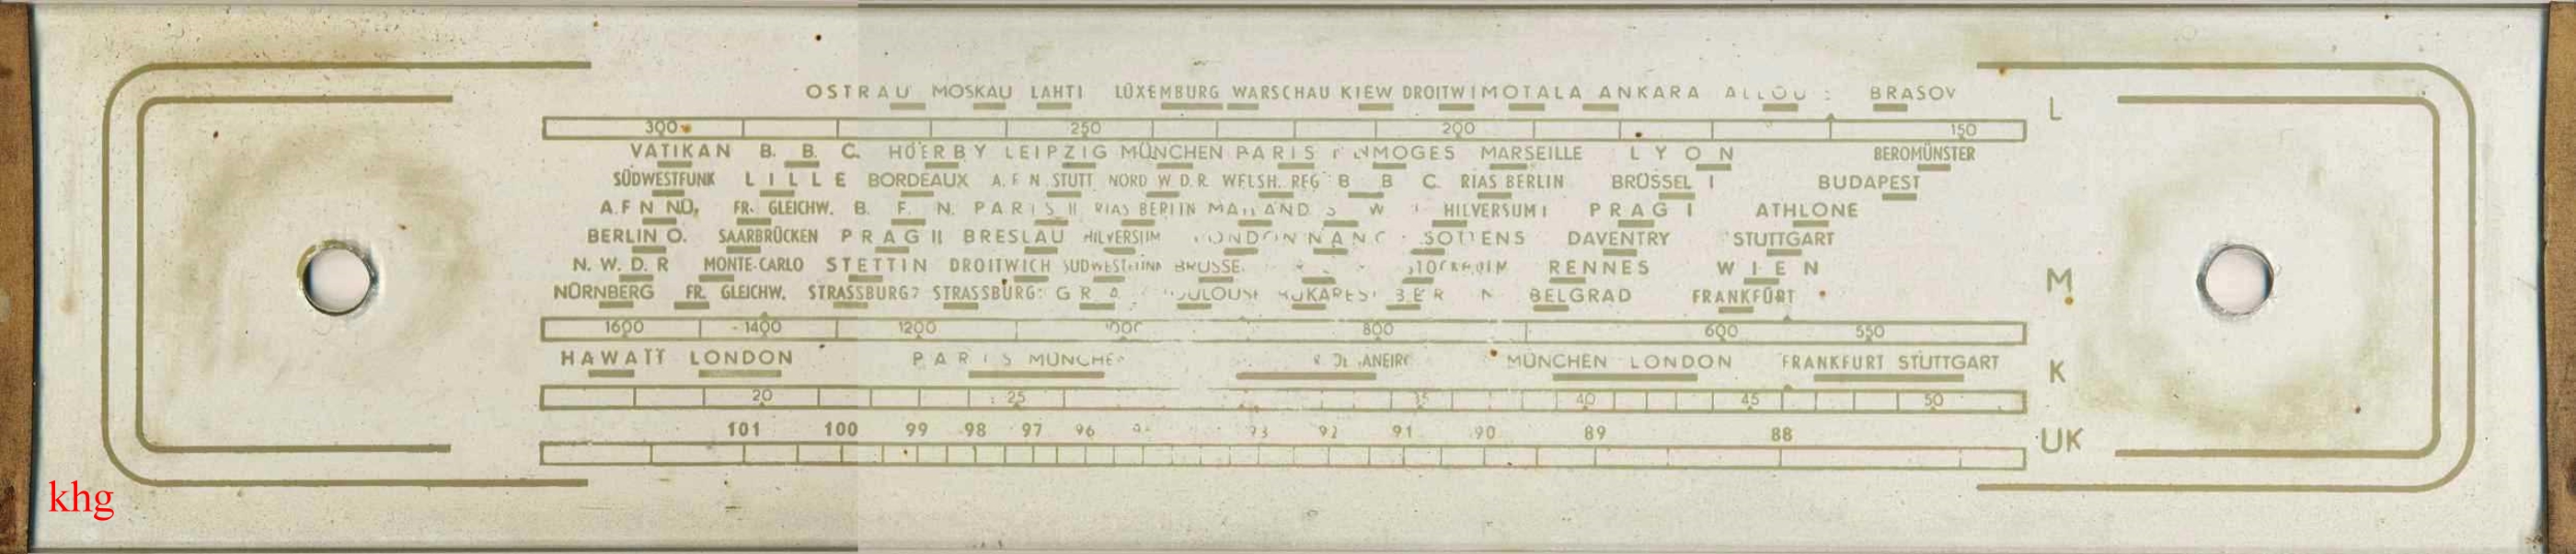 OSTRAU MOSKAU LAHTI LÜXEMBURG WARSCHAU KIEW DROITWI MOTALA ANKARA BRASOV
L
300 250 200 150
VATIKAN B. B. C. HÖERBY LEIPZIG MÜNCHEN PARIS MARSEILLE LYON BEROMÜNSTER
SÜDWESTFUNK LILLE BORDEAUX A. F. N. STUTT. NORD W. D. R. WELSH. REG B B C. RIAS BERLIN BRÜSSEL I BUDAPEST
A. F N NÜ. FR. GLEICHW. B. F. N. PARIS II RIAS BERLIN HILVERSUM I PRAG I ATHLONE
BERLIN O. SAARBRÜCKEN PRAG II BRESLAU HILVERSUM SOTTENS DAVENTRY STUTTGART
N. W. D. R MONTE-CARLO STETTIN DROITWICH RENNES WIEN
M
NÜRNBERG FR. GLEICHW. STRASSBURG STRASSBURG BELGRAD FRANKFÜRT
1600 1400 1200 800 600 550
HAWAII LONDON PARIS MÜNCHE MÜNCHEN LONDON FRANKFURT STUTTGART
K
20 25 35 40 45 50
101 100 99 98 97 96 93 92 91 90 89 88
UK
khg